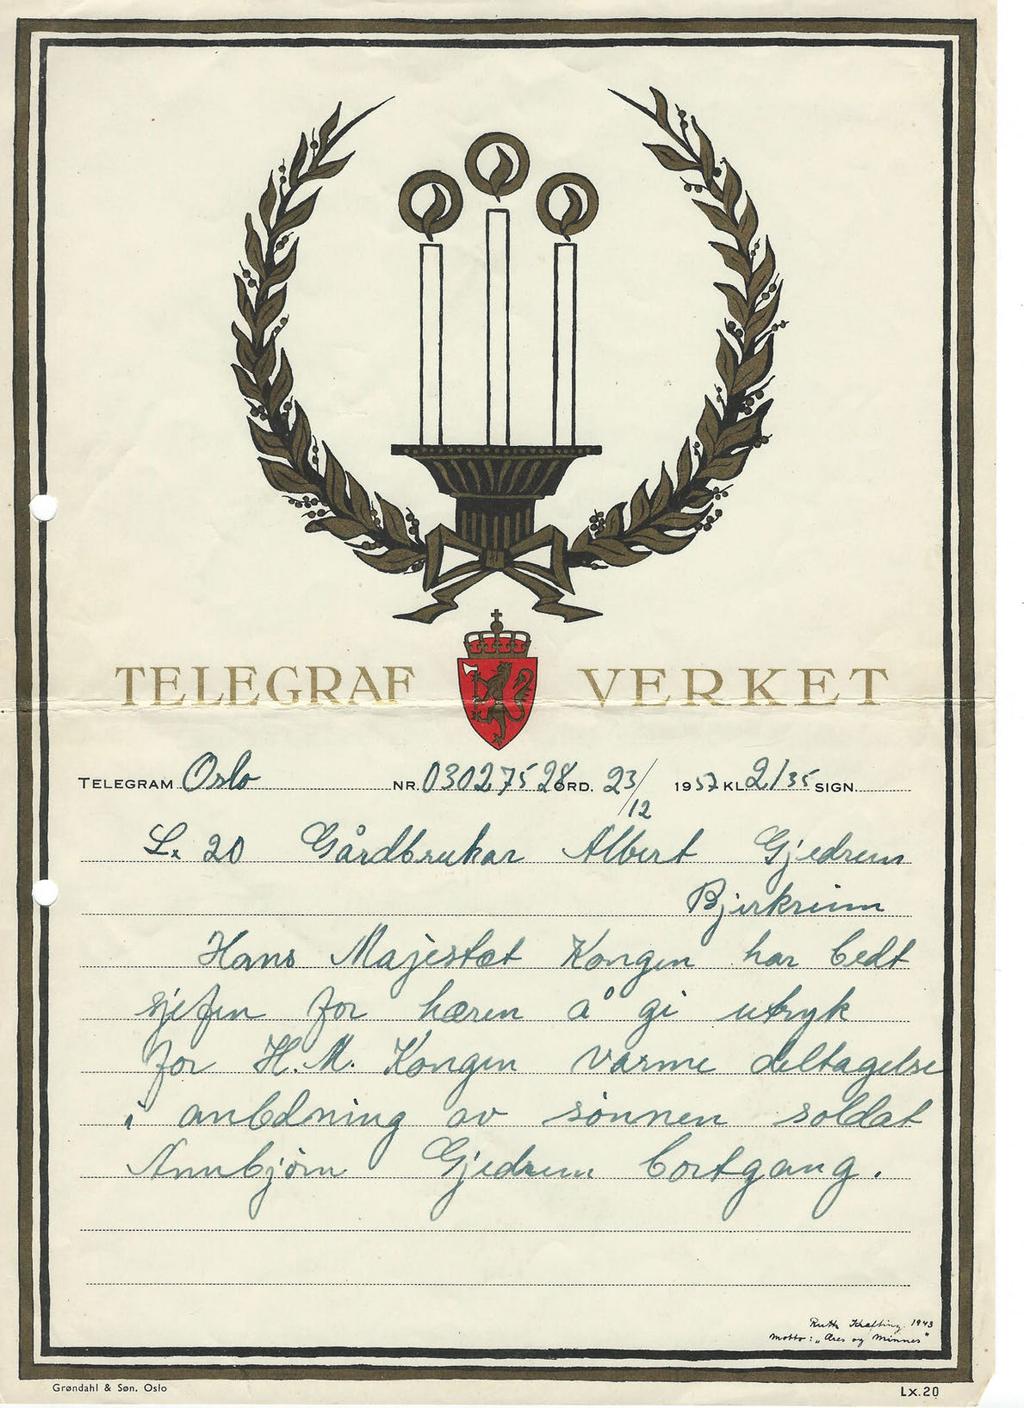 TELEGRAF VERKET
TELEGRAM Oslo NR. 030275 28 ORD. 23/12 1957 KL 2/35 SIGN.
Lx 20 Gårdbrukar Albert Gjedrem
Bjerkreim
Hans Majestæt Kongen har bedt
sjefen for hæren å gi utryk
for H.M. Kongen varme deltagelse
i anledning av sønnen soldat
Annbjörn Gjedrem bortgang.
Ruth Krefting. 1943
Motto: "Æres og Minnes"
Grøndahl & Søn. Oslo Lx.20